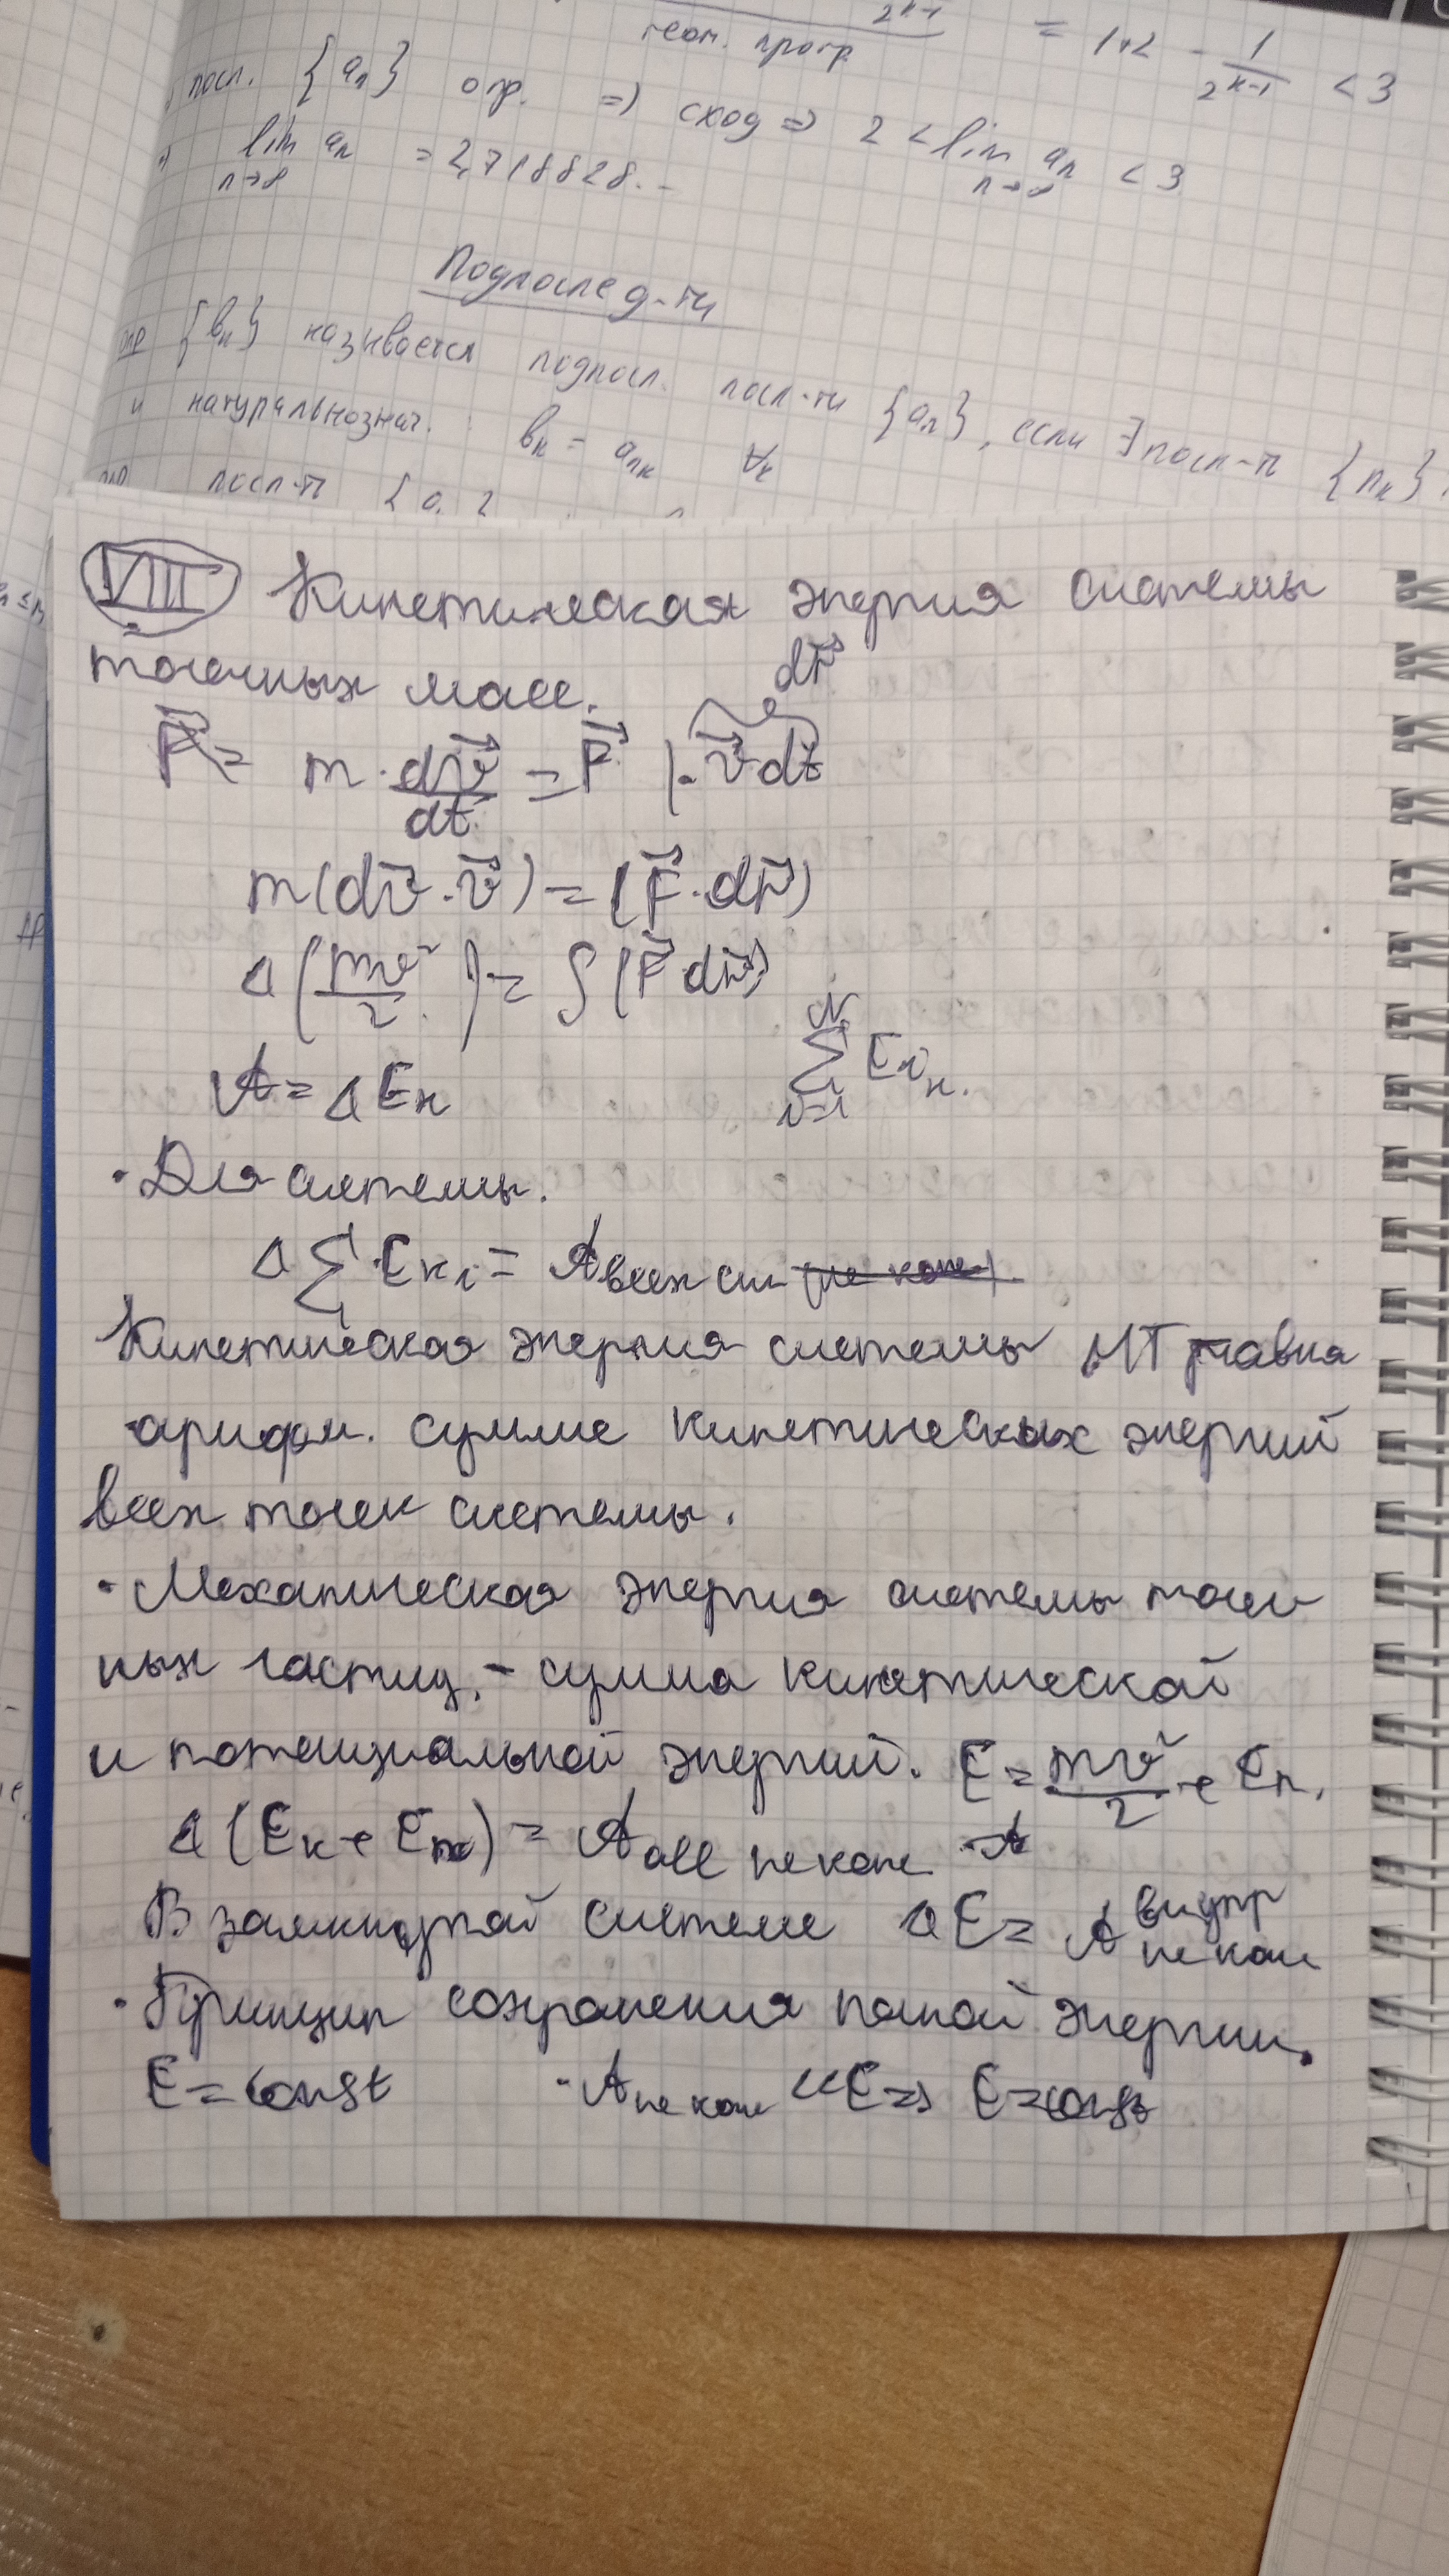 геом. прогр 2^{k-1} = 1+2 - 1/2^{k-1} < 3
посл. {aₙ} огр. => сход => 2 < lim aₙ < 3
n→∞
lim aₙ = 2,718828...
n→∞
Подпослед-ти
опр {bₖ} называется подпосл. посл-ти {aₙ}, если ∃ посл-ть {nₖ}
и натуральнознач. : bₖ = aₙₖ ∀k
посл-ть {a
VIII Кинетическая энергия системы
точечных масс.
dr⃗
F⃗ = m · dv⃗/dt = F⃗ | · v⃗dt
m(dv⃗ · v⃗) = (F⃗ · dr⃗)
Δ(mv²/2) = ∫(F⃗ dr⃗)
A = ΔEк
N
∑ Eiк.
i=1
· Для системы.
Δ∑Eкi = Aвсех сил (не конс)
Кинетическая энергия системы МТ равна
арифм. сумме кинетических энергий
всех точек системы.
· Механическая энергия системы точеч
ных частиц, - сумма кинетической
и потенциальной энергий. E = mv²/2 + Eп.
Δ(Eк + Eп) = Aall неконс
В замкнутой системе ΔE = A внутр неконс
· Принцип сохранения полной энергии.
E = const · Aнеконс << E => E = const